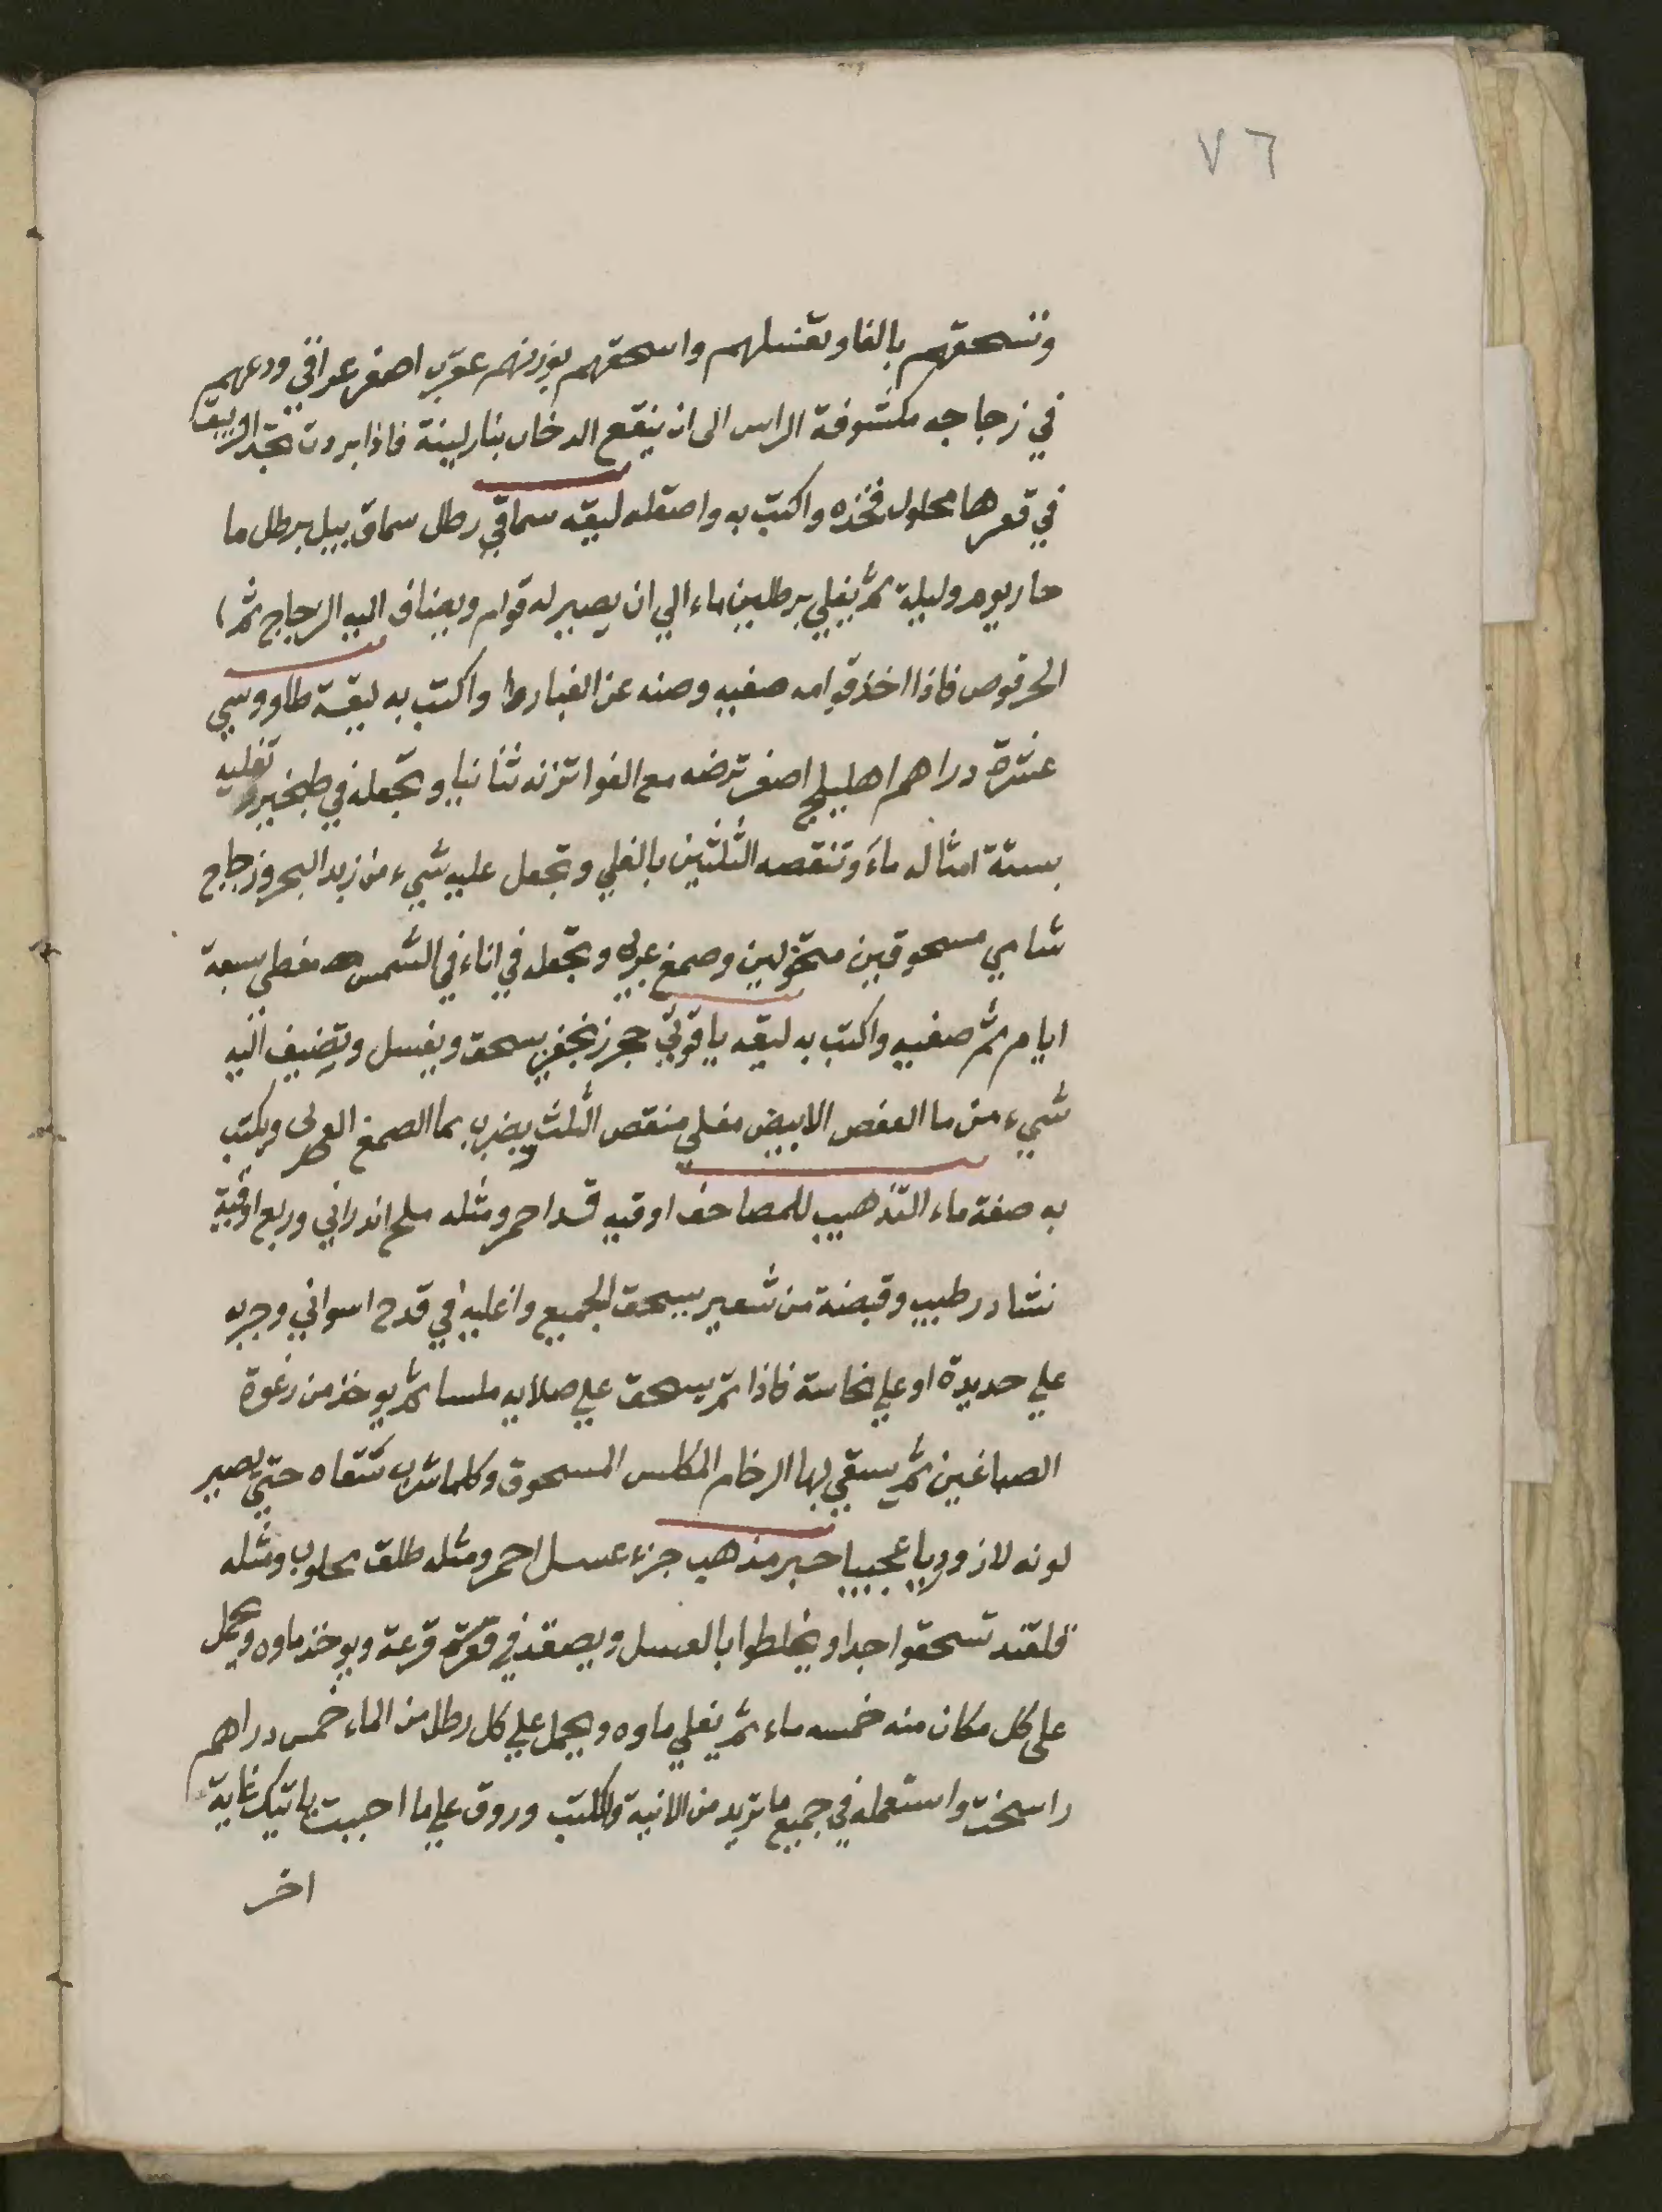 ٧٦
وتسحقهم بالغا وتغسلهم واسحقهم بوزنهم عقرب اصفر عراقي ودعهم
في زجاجه مكشوفة الراس الى ان ينقع الدخان بنار لينة فاذا بردت تجد الزيبق
في قعرها محلول فخذه واكتب به واصقله ليقه سماقي رطل سماق يبل برطل ما
حار يوم وليلة ثم يغلي برطلين ماء الي ان يصير له قوام ويضاف اليه الزجاج ثم
الحرقوص فاذا اخذ قوامه صفيه وصنه عن الغبار واكتب به ليقة طاووسي
عشرة دراهم اهليلج اصفر ترضه مع النوا تزنه ثانيا وتجعله في طنجير تغليه
بستة امثاله ماء وتنقصه الثلثين بالغلي وتجعل عليه شيء من زبد البحر وزجاج
شامي مسحوقين منخولين وصمغ عربي وتجعله في اناء في الشمس مغطي سبعة
ايام ثم صفيه واكتب به ليقه ياقوتي حجر زنجفر يسحق ويغسل وتضيف اليه
شيء من ما العفص الابيض مغلي منقص الثلث ويضرب بما الصمغ العربي ويكتب
به صفة ماء التذهيب للمصاحف اوقيه احمر ومثله ملح اندراني وربع اوقية
نشادر طيب وقبضة من شعير يسحق الجميع واغليه في قدح اسواني وجربه
علي حديدة او علي نحاسة فاذا تم يسحق علي صلايه ملسا ثم يوخذ من رغوة
الصباغين ثم يسقي بها الرخام المكلس المسحوق وكلما شرب سقاه حتي يصير
لونه لازورديا عجيبا حبر مذهب جزء عسل احمر ومثله طلق محلوب ومثله
قلقند تسحقوا جدا ويخلطوا بالعسل ويصعد في قرعة ويوخذ ماوه ويجعل
على كل مكان منه خمسه ماء ثم يغلي ماوه ويجعل علي كل رطل من الماء خمس دراهم
راسخت واستعمله في جميع ما تريد من الانية والكتب وروق علي ما احببت ياتيك غاية
اخر